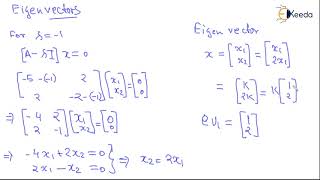 Eigen vectors
For s = -1
[A - SI] x = 0
[-5-(-1) 2; 2 -2-(-1)] [x1; x2] = [0; 0]
⇒ [-4 2; 2 -1] [x1; x2] = [0; 0]
⇒ -4x1 + 2x2 = 0
2x1 - x2 = 0 } ⇒ x2 = 2x1
Ekeeda
Eigen vector
x = [x1; x2] = [x1; 2x1]
= [K; 2K] = K [1; 2]
eV1 = [1; 2]